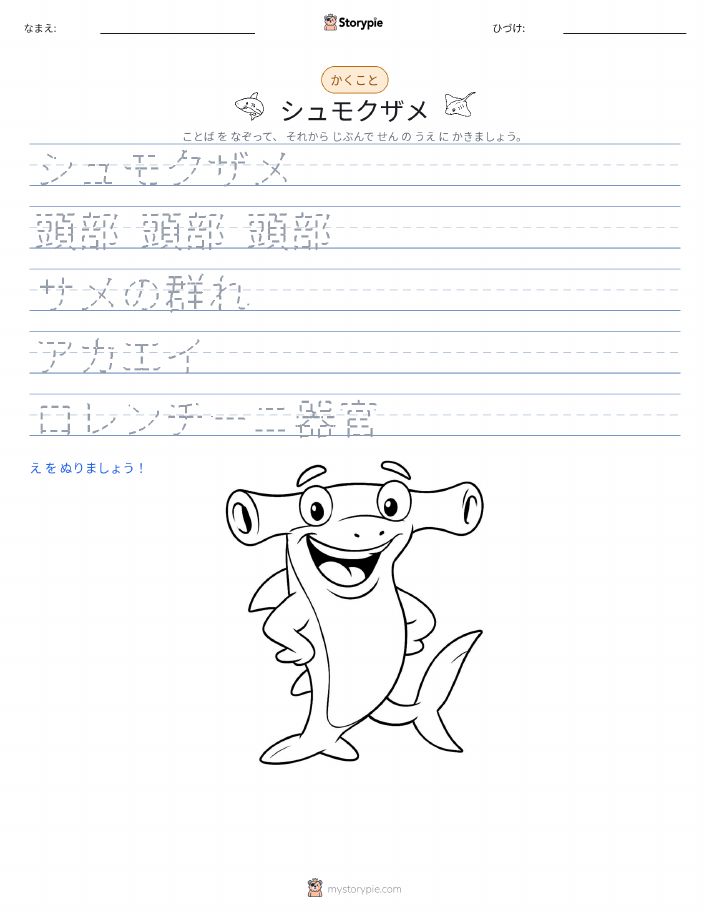 なまえ:
Storypie
ひづけ:
かくこと
シュモクザメ
ことば を なぞって、 それから じぶんで せん の うえ に かきましょう。
シュモクザメ
頭部 頭部 頭部
サメの群れ
アカエイ
ロレンチーニ器官
え を ぬりましょう！
mystorypie.com